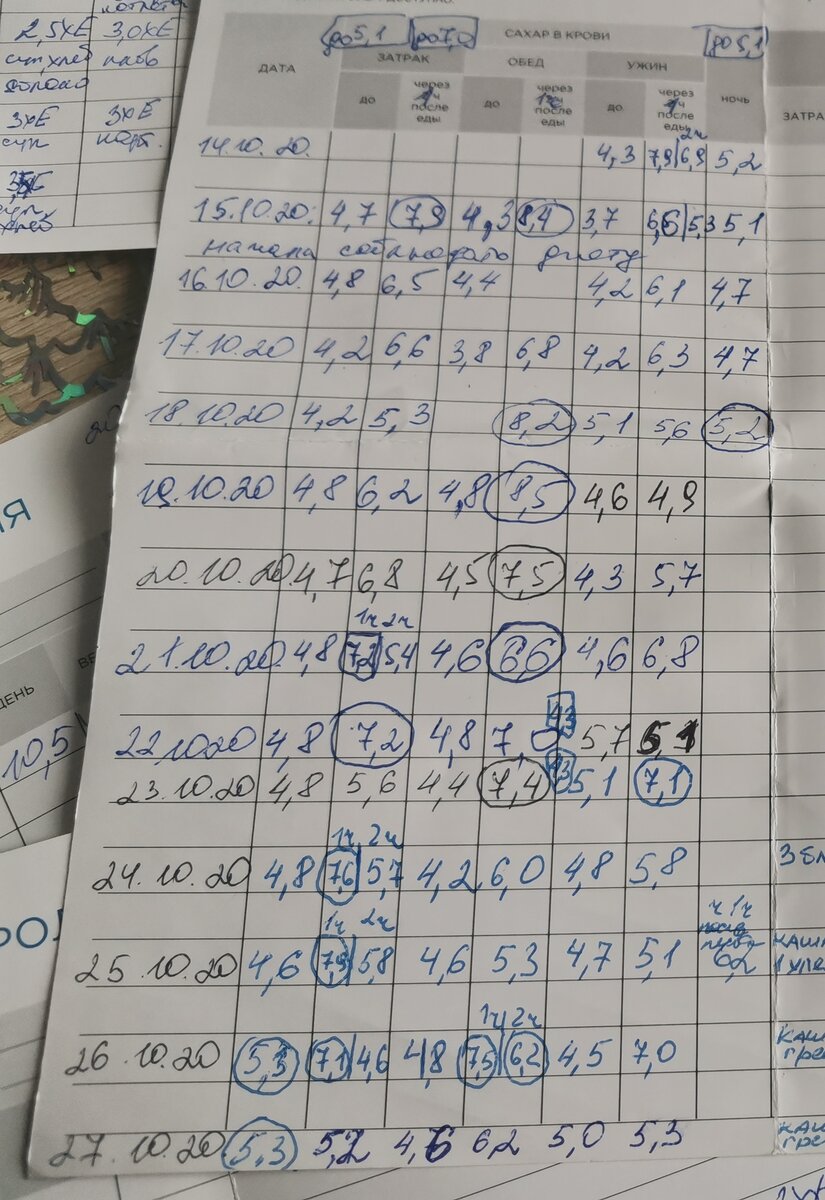 2,5ХЕ 3,0ХЕ
3ХЕ 3ХЕ
суп
до 5,1 до 7,0 САХАР В КРОВИ до 5,1
ДАТА ЗАТРАК ОБЕД УЖИН НОЧЬ
до через 1ч после еды до через 1ч после еды до через 1ч после еды
ЗАТРА
2ч
14.10.20. 4,3 7,9|6,9 5,2
15.10.20. 4,7 7,9 4,3 8,4 3,7 6,6|5,3 5,1
начала соблюдать диету
16.10.20. 4,8 6,5 4,4 4,2 6,1 4,7
17.10.20 4,2 6,6 3,8 6,8 4,2 6,3 4,7
18.10.20 4,2 5,3 8,2 5,1 5,6 5,2
19.10.20 4,8 6,2 4,8 8,5 4,6 4,9
20.10.20. 4,7 6,8 4,5 7,5 4,3 5,7
1ч 2ч
21.10.20. 4,8 7,2|5,4 4,6 6,6 4,6 6,8
22.10.20 4,8 7,2 4,8 7,0 4,3 5,7 6,1
23.10.20 4,8 5,6 4,4 7,4 4,3 5,1 7,1
1ч 2ч
24.10.20 4,8 7,6|5,7 4,2 6,0 4,8 5,8
1ч 2ч ч 1ч
25.10.20 4,6 7,9|5,8 4,6 5,3 4,7 5,1 6,2
1ч 2ч
26.10.20 5,3 7,1|4,6 4,8 7,5|6,2 4,5 7,0
27.10.20 5,3 5,2 4,6 6,2 5,0 5,3
ДЕНЬ
10,5